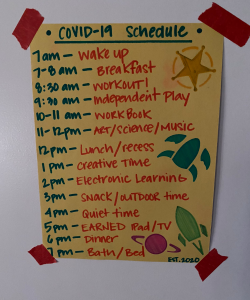 COVID-19 Schedule
7am - Wake up
7-8 am - Breakfast
8:30 am - WORKOUT!
9:30 am - Independent Play
10-11 am - WORKBOOK
11-12pm - ART/SCIENCE/MUSIC
12pm - Lunch/recess
1 pm - Creative Time
2pm - Electronic Learning
3pm - SNACK/OUTDOOR time
4pm - Quiet time
5pm - EARNED iPad/TV
6pm - Dinner
7pm - Bath/Bed
EST. 2020